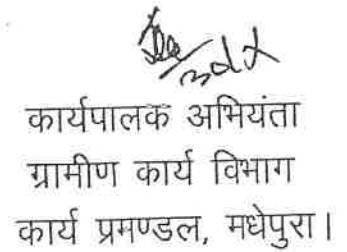 कार्यपालक अभियंता
ग्रामीण कार्य विभाग
कार्य प्रमण्डल, मधेपुरा।